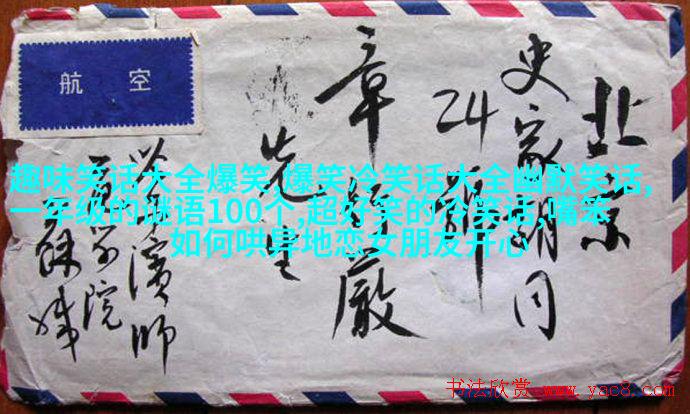 航空
北京
史家胡同
24
章 嚴
先生
濱師
院
趣味笑话大全爆笑,爆笑冷笑话大全幽默笑话,
一年级的谜语100个,超好笑的冷笑话,嘴笨
如何哄异地恋女朋友开心
书法欣赏 www.yac8.com